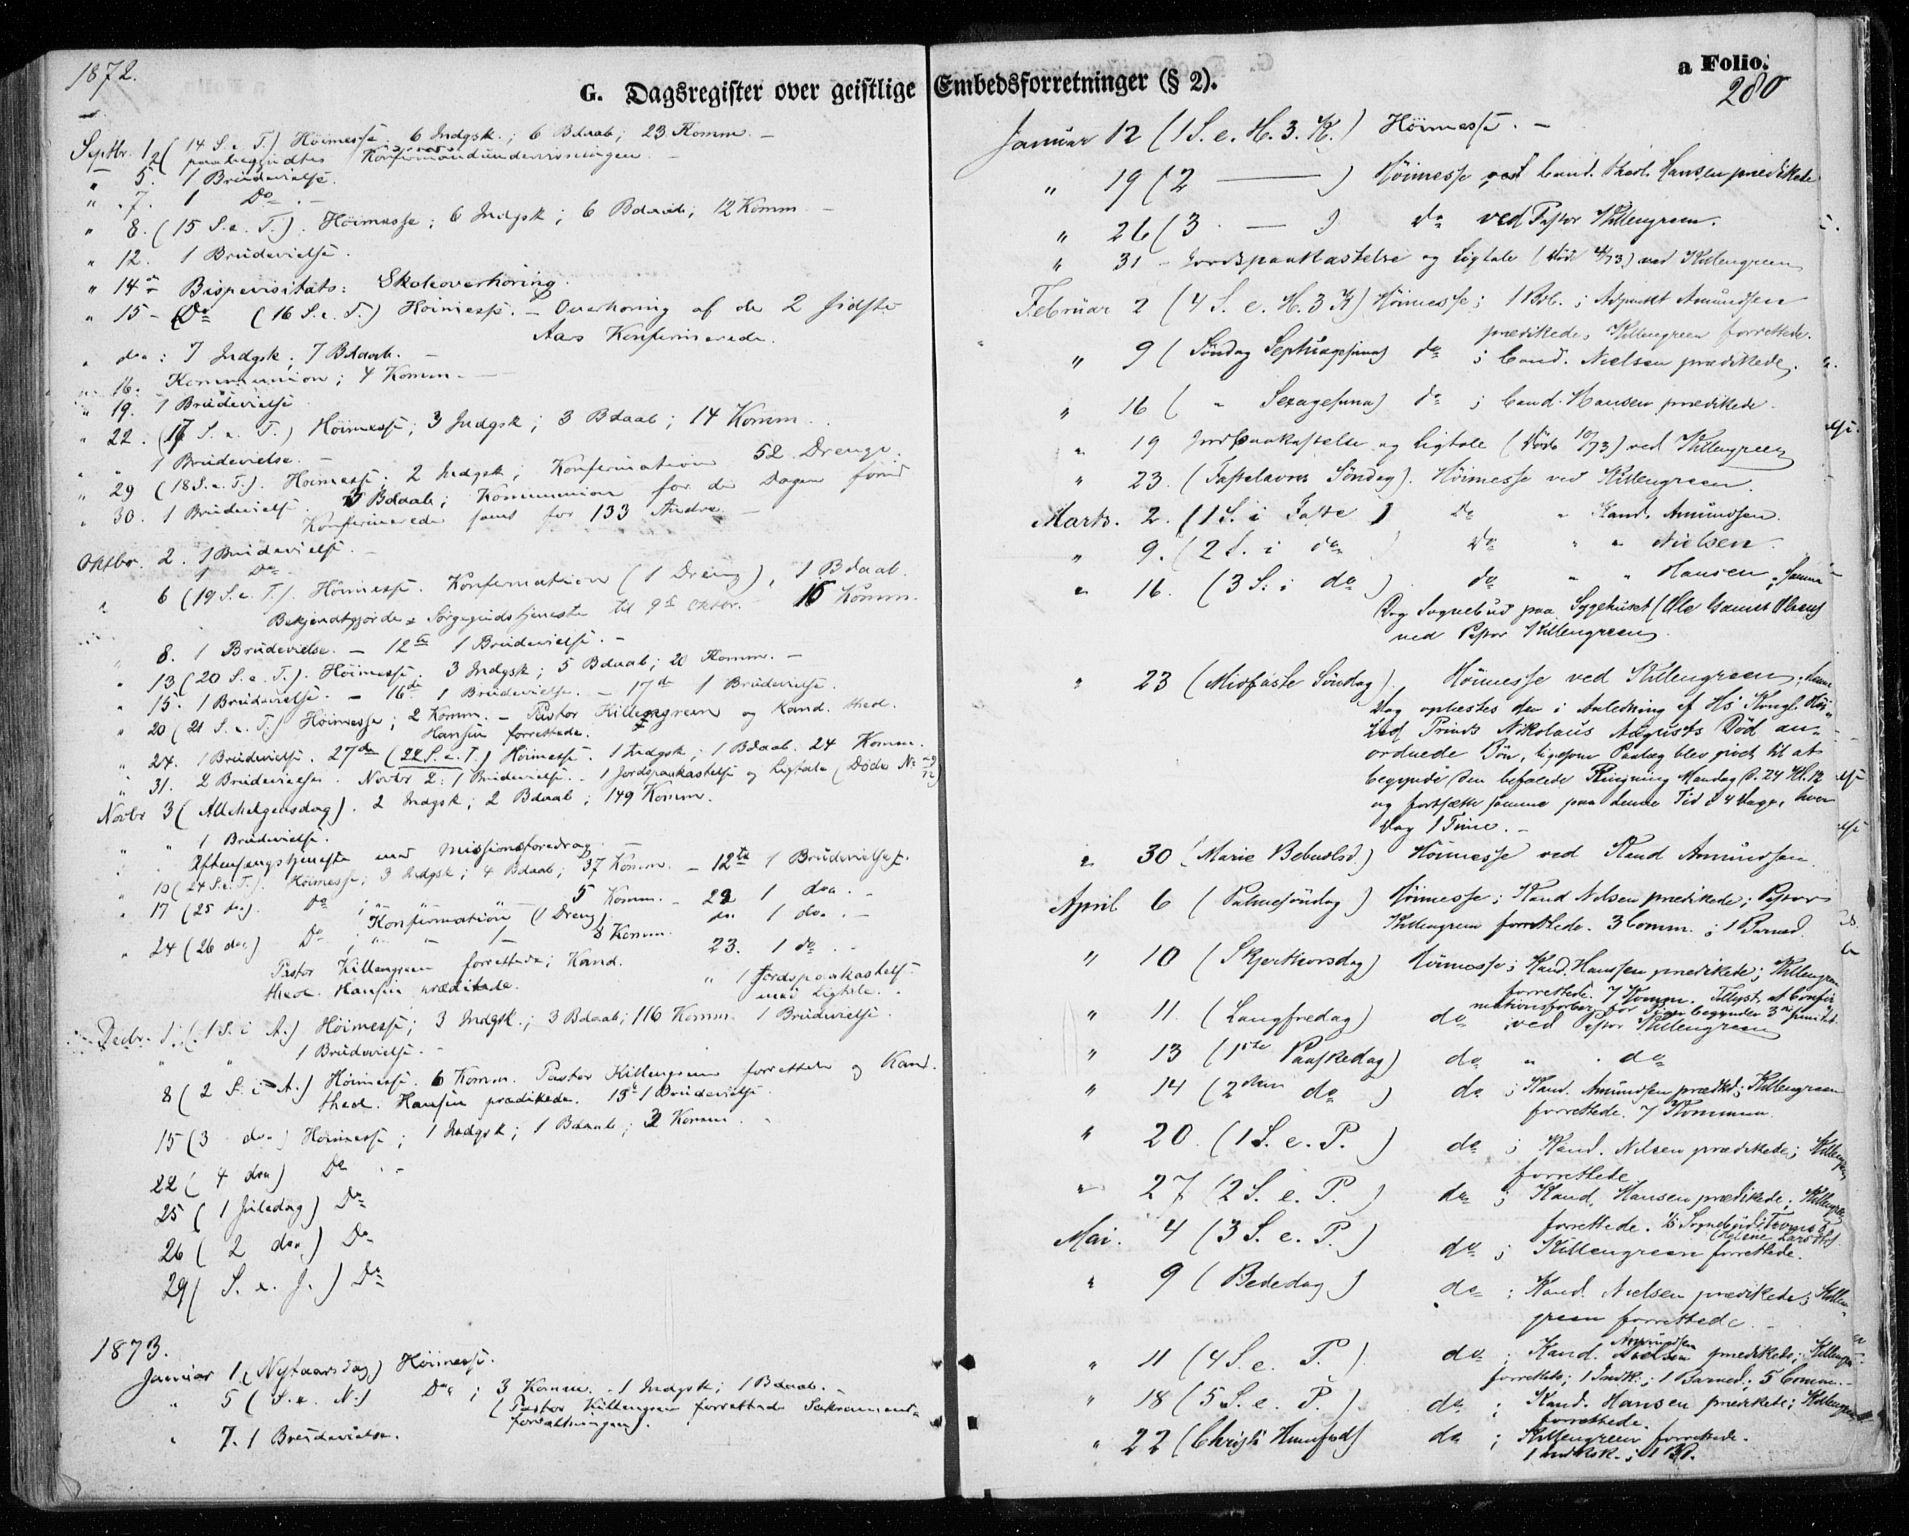 1872.
G. Dagsregister over geistlige Embedsforretninger (§ 2).
a Folio.
280
Septbr. 1 (14 S. e. T.) Høimesse 6 Indgsk.; 6 Bdaab; 23 Komm. –
2 paabegyndtes Konfirmandundervisningen. –
" 5. 1 Brudevielse.
" 7. 1 Do –
" 8. (15 S. e. T.). Høimesse; 6 Indgsk; 6 Bdaab; 12 Komm –
" 12. 1 Brudevielse.
" 14de Bispevisitats: Skoleoverhøring.
" 15 – Do (16 S. e. T.) Høimesse. – Overhøring af de 2 sidste
Aars Konfirmerede.
" do: 7 Indgsk; 7 Bdaab. –
" 16. Kommunion; 4 Komm. –
" 19. 1 Brudevielse
" 22. (17 S. e. T.) Høimesse; 3 Indgsk; 3 Bdaab; 14 Komm.
" " 1 Brudevielse. –
" 29 (18 S. e. T.). Høimesse; 2 Indgsk; Konfirmation 52 Drenge.
" 30. 1 Brudevielse. 3 Bdaab; Kommunion for de Dagen forud
Konfirmerede samt for 133 Andre –
Oktbr. 2. 1 Brudevielse. –
1 Do –
" 6 (19 S. e. T.). Høimesse. Konfirmation (1 Dreng), 1 Bdaab.
Bekjendtgjorde Sørgegudstjeneste til 9de Oktbr. 16 Komm.
" 8. 1 Brudevielse. – 12te 1 Brudevielse. –
" 13 (20 S. e. T.). Høimesse. 3 Indgsk; 5 Bdaab; 20 Komm. –
" 15. 1 Brudevielse. – 16de 1 Brudevielse. – 17de 1 Brudevielse.
" 20 (21 S. e. T.) Høimesse; 2 Komm. – Pastor Killengreen og Kand. theol.
Hansen forrettede.
" 24. 1 Brudevielse. 27de (22 S. e. T.) Høimesse. 1 Indgsk; 1 Bdaab. 24 Komm.
" 31. 2 Brudevielser. Novbr 2: 1 Brudevielse. 1 Jordspaakastelse og Ligtale
Novbr 3 (Allehelgensdag). 2 Indgsk; 2 Bdaab; 149 Komm.
" " 1 Brudevielse.
" " Aftensangstjeneste med Missionsforedrag. –
" 10 (24 S. e. T.). Høimesse; 3 Indgsk; 4 Bdaab; 37 Komm. – 12te 1 Brudevielse.
" 17 (25 do). Do 5 Komm. – 22 1 do. –
Konfirmation (1 Dreng) do 1 do. –
" 24 (26 do) Do 8 Komm. 23. 1 do. –
Pastor Killengreen forrettede; Kand. " 1 Jordspaakastelse
theol. Hansen prædikede. med Ligtale.
Decbr. 1. (1 S. i A.) Høimesse; 3 Indgsk.; 3 Bdaab; 116 Komm. 1 Brudevielse.
" " 1 Brudevielse. –
8 (2 S. i A.) Høimesse. 6 Komm. Pastor Killengreen forrettede og Kand.
theol. Hansen prædikede. 15de 1 Brudevielse.
15 (3 do) Høimesse; 1 Indgsk; 1 Bdaab; 2 Komm.
22 (4 do) Do –
25 (1 Juledag) Do
26 (2 do) Do
29 (S. e. J.) Do
1873.
Januar 1 (Nytaarsdag) Høimesse.
" 5 (S. e. N.) Do; 3 Komm. 1 Indgsk; 1 Bdaab. –
(Pastor Killengreen forrettede Sakrament-
forvaltningen).
" 7. 1 Brudevielse.
Januar 12 (1 S. e. H. 3. K.) Høimesse. –
" 19 (2 —) Høimesse ved Cand. theol. Hansen prædikede
" 26 (3 —) do ved Pastor Killengreen.
" 31 – Jordspaakastelse og Ligtale ved Killengreen
Februar 2 (4 S. e. H. 3 K) Høimesse; 1 Bdb.; Adjunkt Amundsen
prædikede, Killengreen forrettede.
" 9 (Søndag Septuagesima) do; Cand. Nielsen prædikede.
" 16 ( " Sexagesima) do; Cand. Hansen prædikede.
" 19 Jordpaakastelse og Ligtale ved Killengreen
" 23. (Fastelavns Søndag). Høimesse ved Killengreen.
Marts. 2. (1 S. i Faste) Do " Kand. Amundsen.
" 9. (2 S. i do) Do " " Nielsen.
" 16. (3 S. i do) do " " Hansen; Samme
Dag Sognebud paa Sygehuset
ved Pastor Killengreen.
" 23 (Midfaste Søndag). Høimesse ved Killengreen, samme
Dag oplæstes den i Anledning af Hs Kongl. Høi-
hed Prinds Nikolaus Augusts Død an-
ordnede Bøn, ligesom Paalæg blev givet til at
begynde den befalede Ringning Mandag D. 24 Kl. 12
og fortsætte samme paa denne Tid i 4 Dage, hver
Dag 1 Time. –
" 30 (Marie Bebudlsd.) Høimesse ved Kand Amundsen
April 6 (Palmesøndag) Høimesse; Kand Nilsen prædikede; Pastor
Killengreen forrettede. 3 Comm.; 1 Barned.
" 10 (Skjerthorsdag) Høimesse; Kand. Hanssen prædikede; Killengreen
forrettede. 7 Komm.
" 11. (Langfredag) do ved Pastor Killengreen
" 13 (1ste Paaskedag) do " do
" 14 (2den do) do; Kand. Amundsen prædkd; Killengreen
forrettede. 7 Kommun.
" 20. (1 S. e. P.) do; Kand. Nilsen prædikede; Killengreen
forrettede
" 27 (2 S. e. P.) do; Kand. Hansen prædikede; Killengreen
forrettede.
Mai. 4 (3 S. e. P.) do; Killengreen forrettede.
" 9 (Bededag) do; Kand. Nielsen prædikede; Killen-
green forrettede.
" 11 (4 S. e. P.) do; Kand. Amundsen prædikede; Killengreen
forrettede; 1 Indk.; 1 Barned; 5 Comm. –
" 18 (5 S. e. P.) do; Kand. Hansen prædikede; Killengreen
forrettede.
" 22 (Christi Himmelfart) do; Killengreen forrettede.
1 Indksk.; 1 Bd.